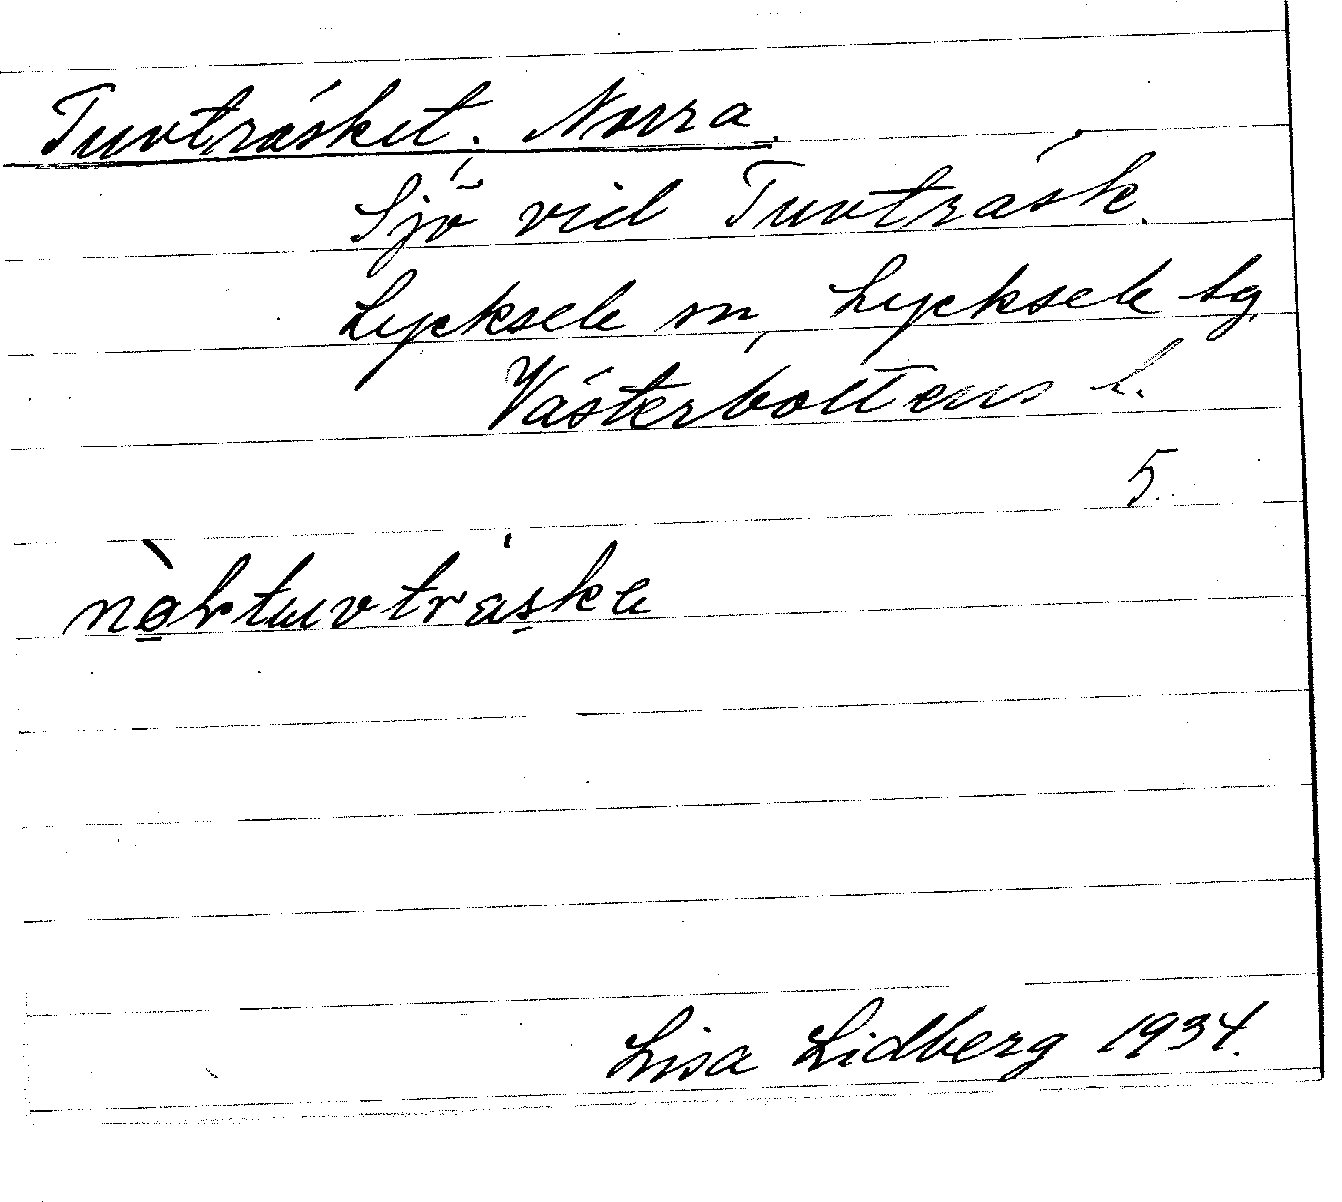 Tuvträsket, Norra.
Sjö vid Tuvträsk.
Lycksele sn, Lycksele lg,
Västerbottens l.
5.
nòrtuvträske
Lisa Lidberg 1934.